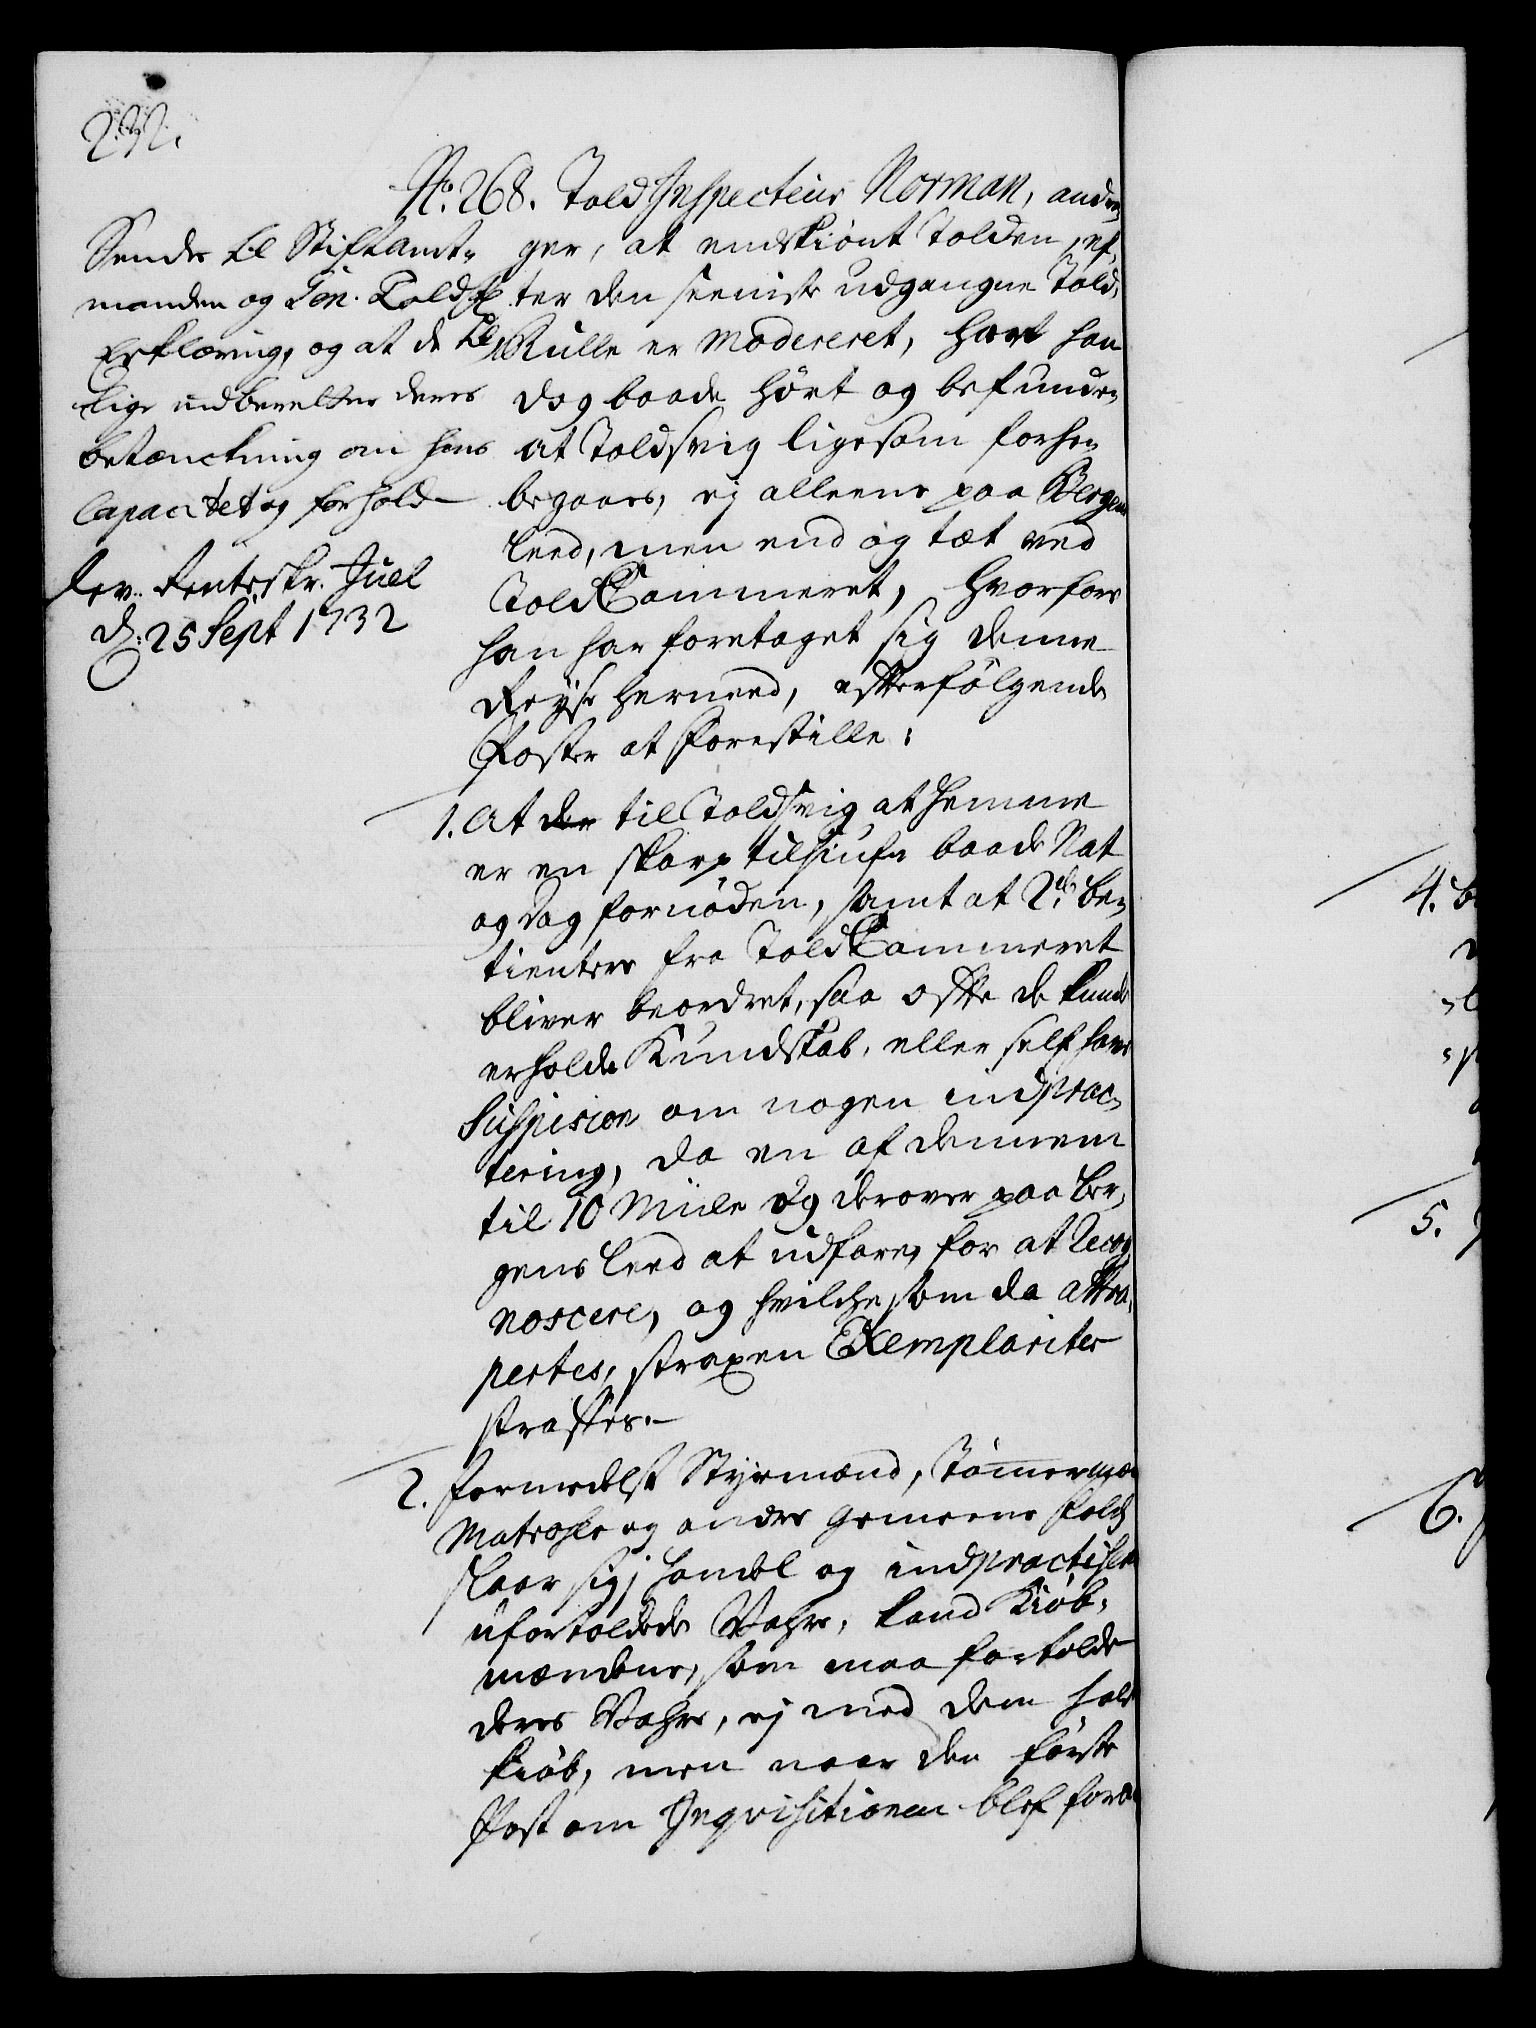 232.
No. 268. Told Inspecteur Norman, andra,
ger, at endskiönt Tolden, ef,
ter den seeniste udgangne Told,
Rulle er modereret, har han
dog baade hört og befunden
at Toldsvig ligesom forhen
begaaes, ej alleene paa Bergens
Leed, men end og tæt ved
ToldCammeret, hvorfore
han har foretaget sig denne
Reyse herneed, efterfölgende
Poster at forestille:
Sendes til Stiftamt-
manden og Gen. Toldf.
Erklæring, og at de til,
lige udbeeltes deres
betænckning om hans
Capacitet og forhold
Lev. Renteskr. Juel
d: 25 Sept 1732
1. At der til Toldsvig at hemme
er en skarp tilsiufn baade Nat
og Dag fornöden, samt at 2de be,
tientere fra ToldCammeret
bliver beordret, saa ofte de kunde
erholde Kundskab, eller self have
Suspicion om nogen indprac,
tering, da en af dennem
til 10 Miile og derover paa Ber,
gens Leed at udfare, for at Recog,
noscere, og hvilche som da attra,
pertes, straxen Exemplariter
straffes.
2. formedelst Styrmænd, Tömmermænd
Matroser og andre gemeene folck
slaar sig i handel og indpractiserer
ufortoldede Vahre, kand Kiöb,
mændene, som maa fortolde
deres Vahre, ej med dem holde
kiöb, men naar den förste
Post om Inqvisitionen blef fore
4. b
5.
6.